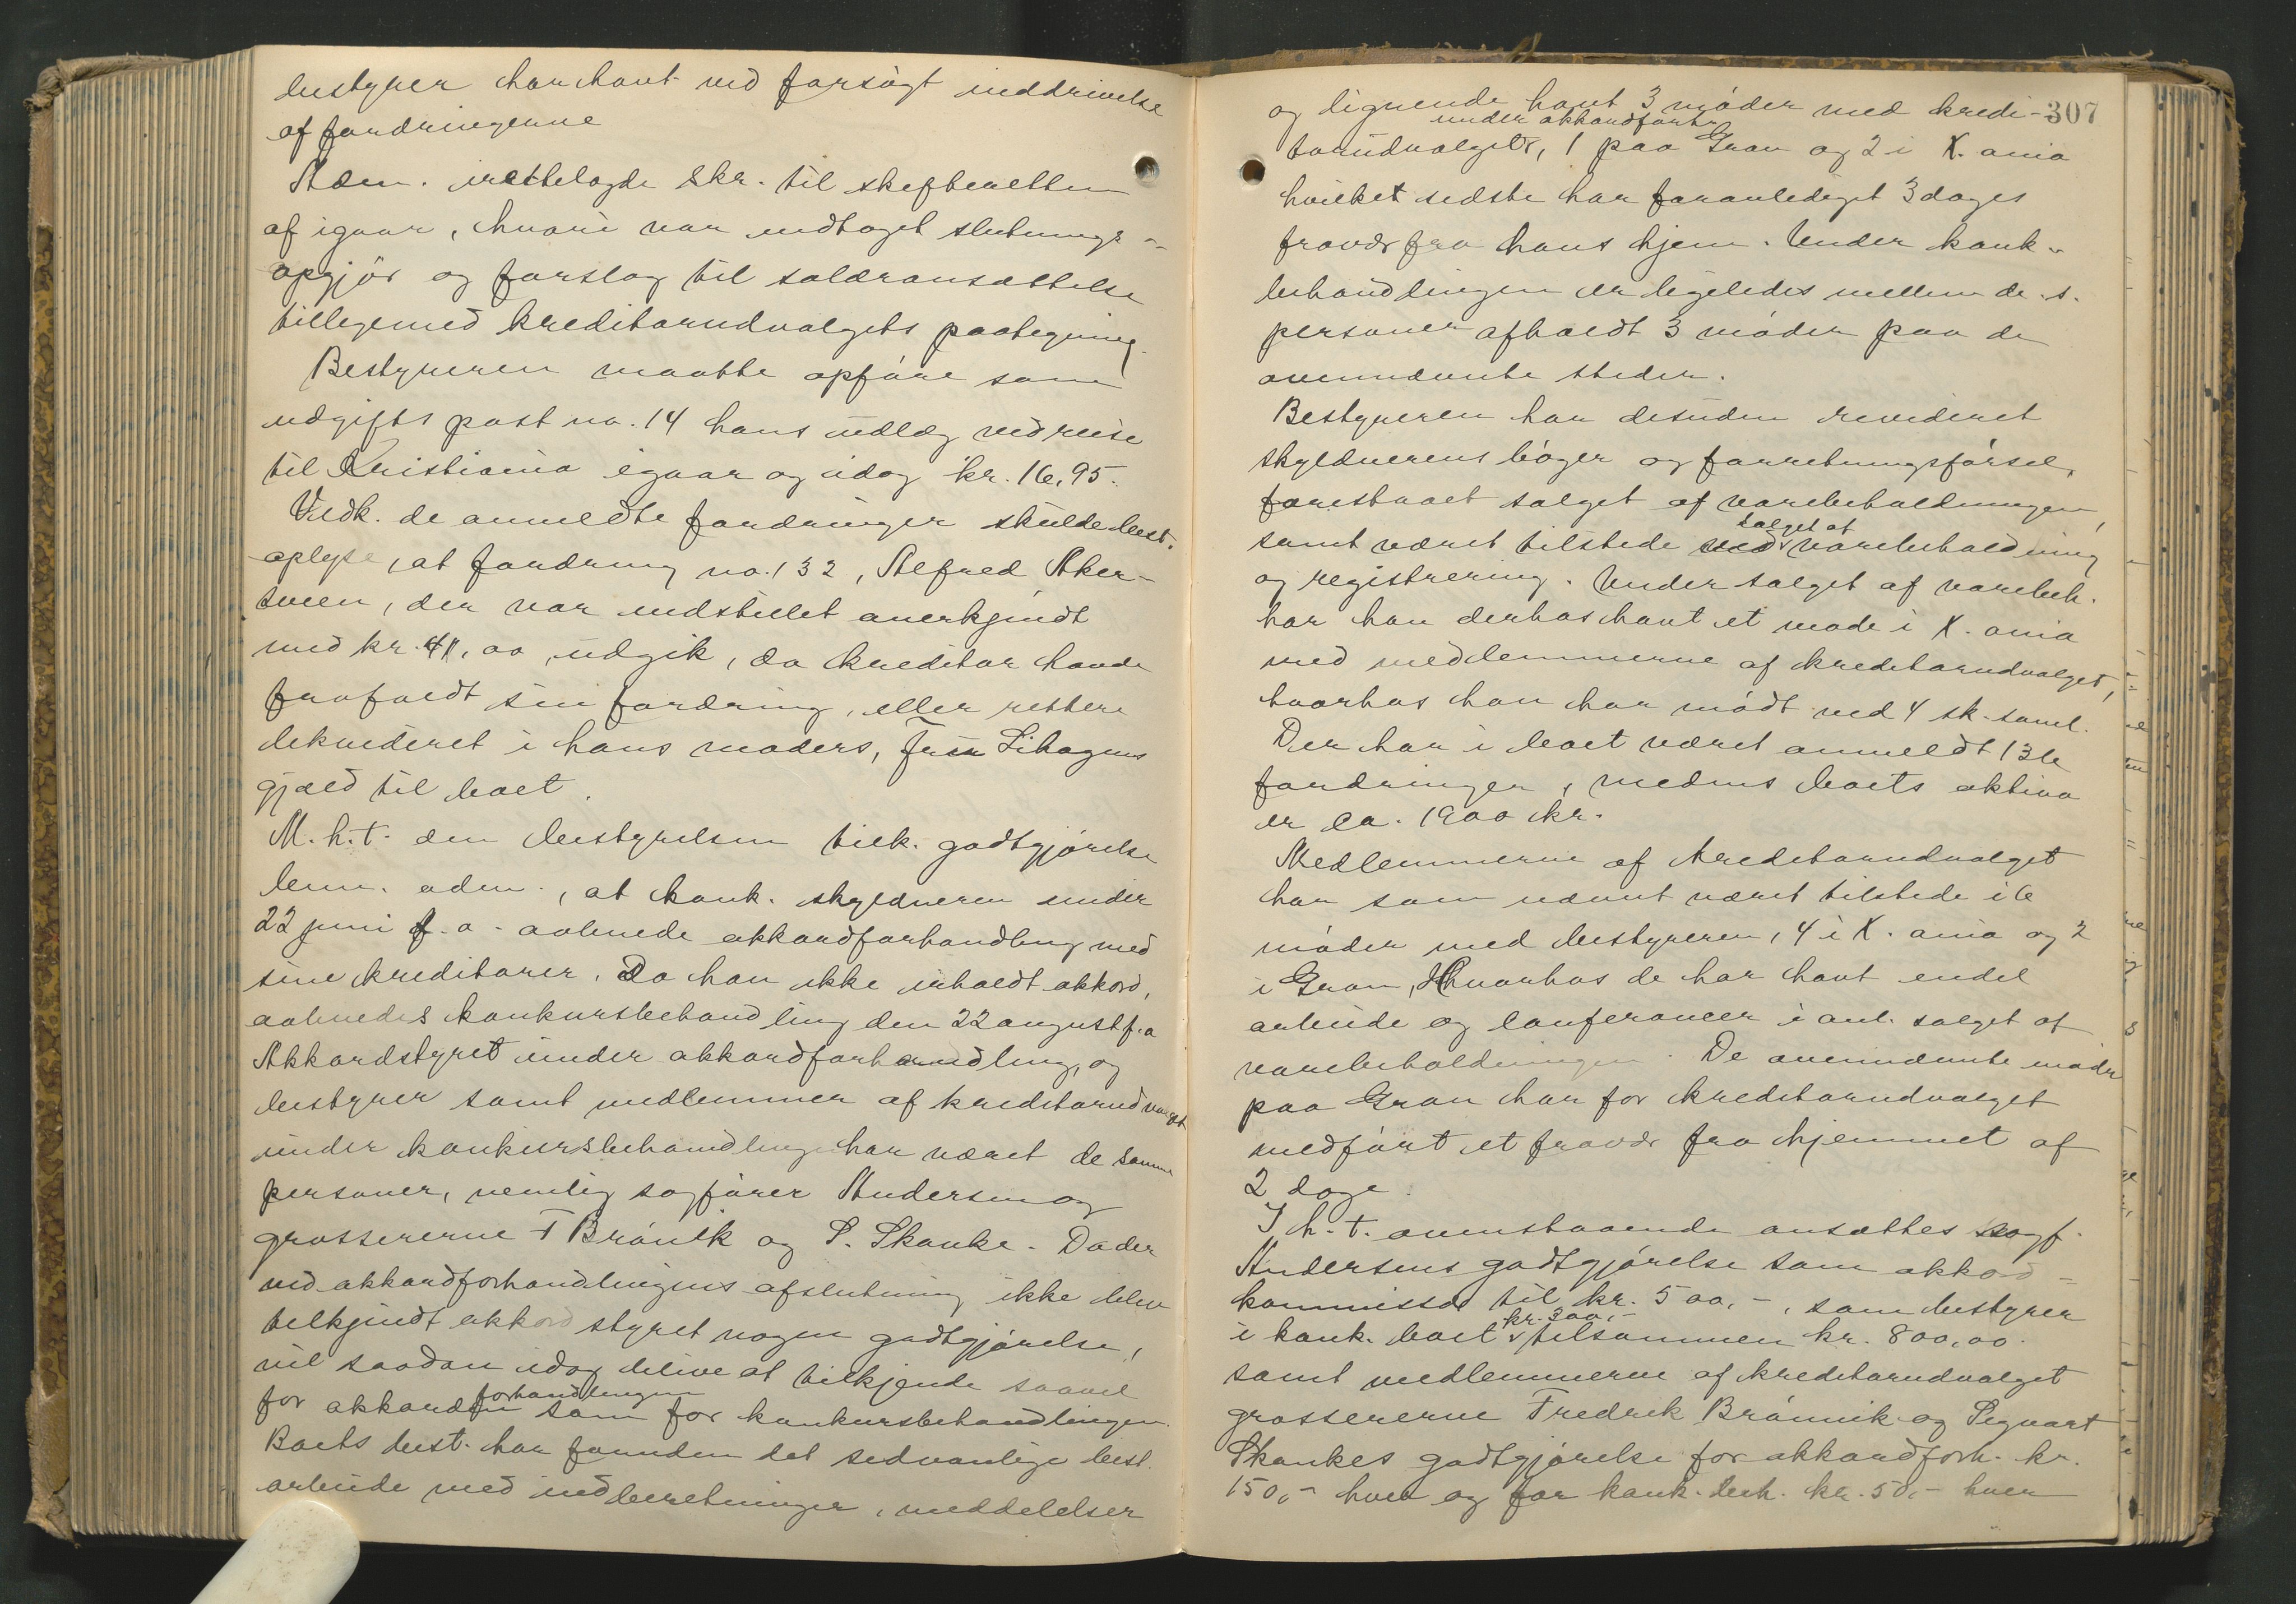 bestyrer har havt ved forsøgt inddrivelse
af fordringerne
Adm. irettelagde skr. til skifteretten
af igaar, hvori var indtaget slutnings-
opgjør og forslag til salæransættelse
tilligemed kreditorudvalgets paategning.
Bestyreren maatte opføre som
udgiftspost no. 14 hans udlæg ved reise
til Kristiania igaar og idag kr. 16,95.
Vedk. de anmeldte fordringer skulde best.
oplyse, at fordring no. 132, Alfred Aker-
sveen, der var indstillet anerkjendt
med kr. 41,00, udgik, da kreditor havde
frafaldt sin fordring, eller rettere
likvideret i hans moders, fru Lihagens
gjæld til boet.
M. h. t. den bestyrelsen tilk. godtgjørelse
bem. adm., at konk. skyldneren under
22 juni f. a. aabnede akkordforhandling med
sine kreditorer. Da han ikke erholdt akkord,
aabnedes konkursbehandling den 22 august f. a
Akkordstyret under akkordforhandling, og
bestyrer samt medlemmer af kreditorudvalget
under konkursbehandling har været de samme
personer, nemlig sagfører Andersen og
grossererne F Brønik og S. Skanke. Da der
ved akkordforhandlingens afslutning ikke blev
tilkjendt akkordstyret nogen godtgjørelse,
vil saadan idag blive at tilkjende saavel
forhandlingen
for akkorden som for konkursbehandlingen.
Boets best. har foruden det sedvanlige best.
arbeide med indberetninger, meddelelser
307
og lignende havt 3 møder med kredi-
under akkordforh.
torudvalget, 1 paa Gran og 2 i X.ania
hvilket sidste har foranlediget 3 dages
fravær fra hans hjem. Under konk.-
behandlingen er ligeledes mellem de s.
personer afholdt 3 møder paa de
ovennævnte steder.
Bestyreren har desuden revideret
skyldnerens bøger og forretningsførsel,
forestaaet salget af varebeholdningen,
salget af
samt været tilstede ved varebeholdning
og registrering. Under salget af varebeh.
har han derhos havt et møde i X.ania
med medlemmerne af kreditorudvalget,
hvorhos han har mødt ved 4 sk.saml.
Der har i boet været anmeldt 136
fordringer, medens boets aktiva
er ca. 1900 kr.
Medlemmerne af kreditorudvalget
har som nævnt været tilstede i 6
møder med bestyreren, 4 i X.ania og 2
i Gran, hvorhos de har havt endel
arbeide og conferancer i anl. salget af
varebeholdningen. De ovennævnte møder
paa Gran har for kreditorudvalget
medført et fravær fra hjemmet af
2 dage.
I h. t. ovenstaaende ansættes sagf.
Andersens godtgjørelse som akkord-
kommissær til kr. 500,-, som bestyrer
kr. 300,-
i konk. boet tilsammen kr. 800,00.
samt medlemmerne af kreditorudvalget
grossererne Fredrik Brønnik og Sigvart
Skankes godtgjørelse for akkordforh. kr.
150,- hver og for konk. beh. kr. 50,- hver